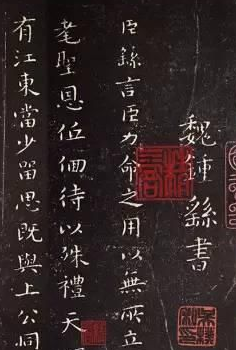 魏鍾繇書
臣繇言臣力命之用以無所立
耄聖恩低佪待以殊禮天
有江東當少留思既與上公同